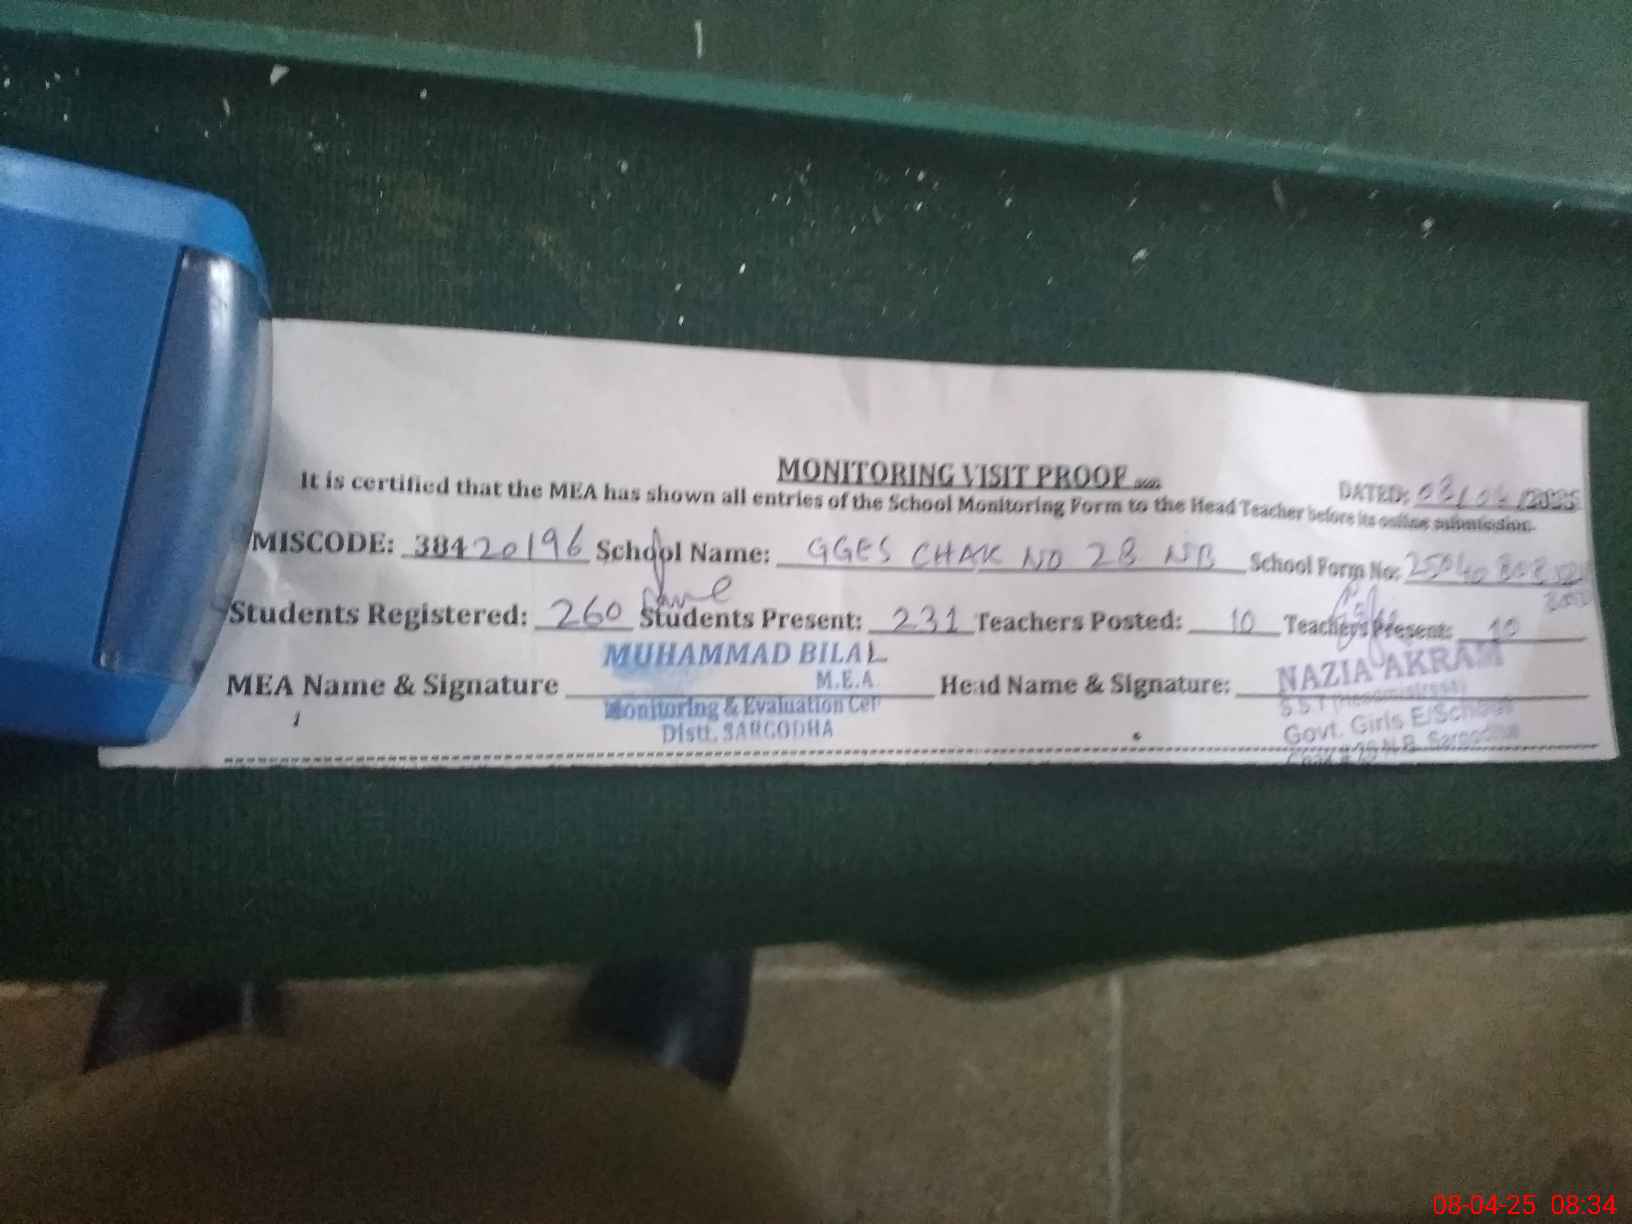 MONITORING VISIT PROOF
DATED: 08/04/2025
It is certified that the MEA has shown all entries of the School Monitoring Form to the Head Teacher before its online submission.
MISCODE: 38420196 School Name: GGES CHAK NO 28 NB School Form No:
Students Registered: 260 Students Present: 231 Teachers Posted: 10 Teachers Present: 10
MEA Name & Signature
MUHAMMAD BILAL
M.E.A
Monitoring & Evaluation Cell
Distt. SARGODHA
Head Name & Signature:
NAZIA AKRAM
S S T (Headmistress)
Govt. Girls E/School
N.B. Sargodha
08-04-25 08:34